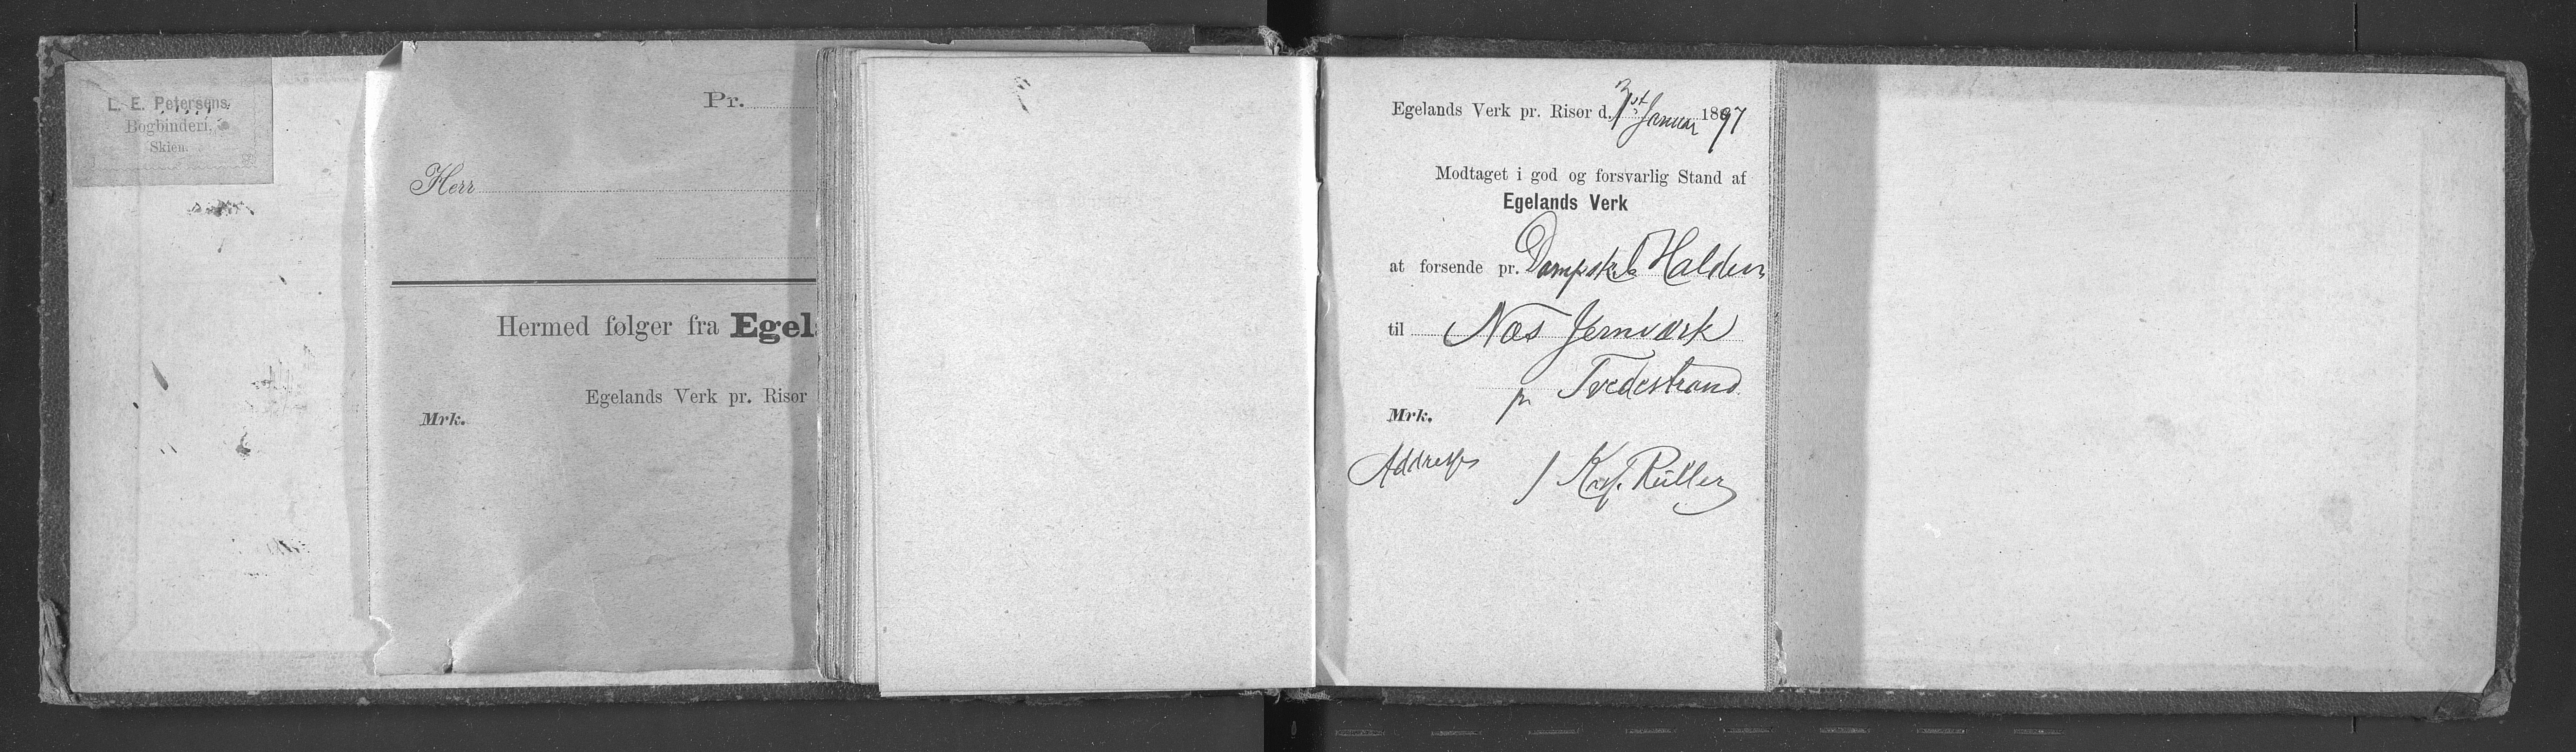 L. E. Petersens
Bogbinderi.
Skien.
Pr.
Herr
Hermed følger fra Egel
Egelands Verk pr. Risør
Mrk.
Egelands Verk pr. Risør d. Januar 1897
Modtaget i god og forsvarlig Stand af
Egelands Verk
at forsende pr. Dampsk. Halden
til Næs Jernværk
pr Tvedestrand
Mrk.
Addresse